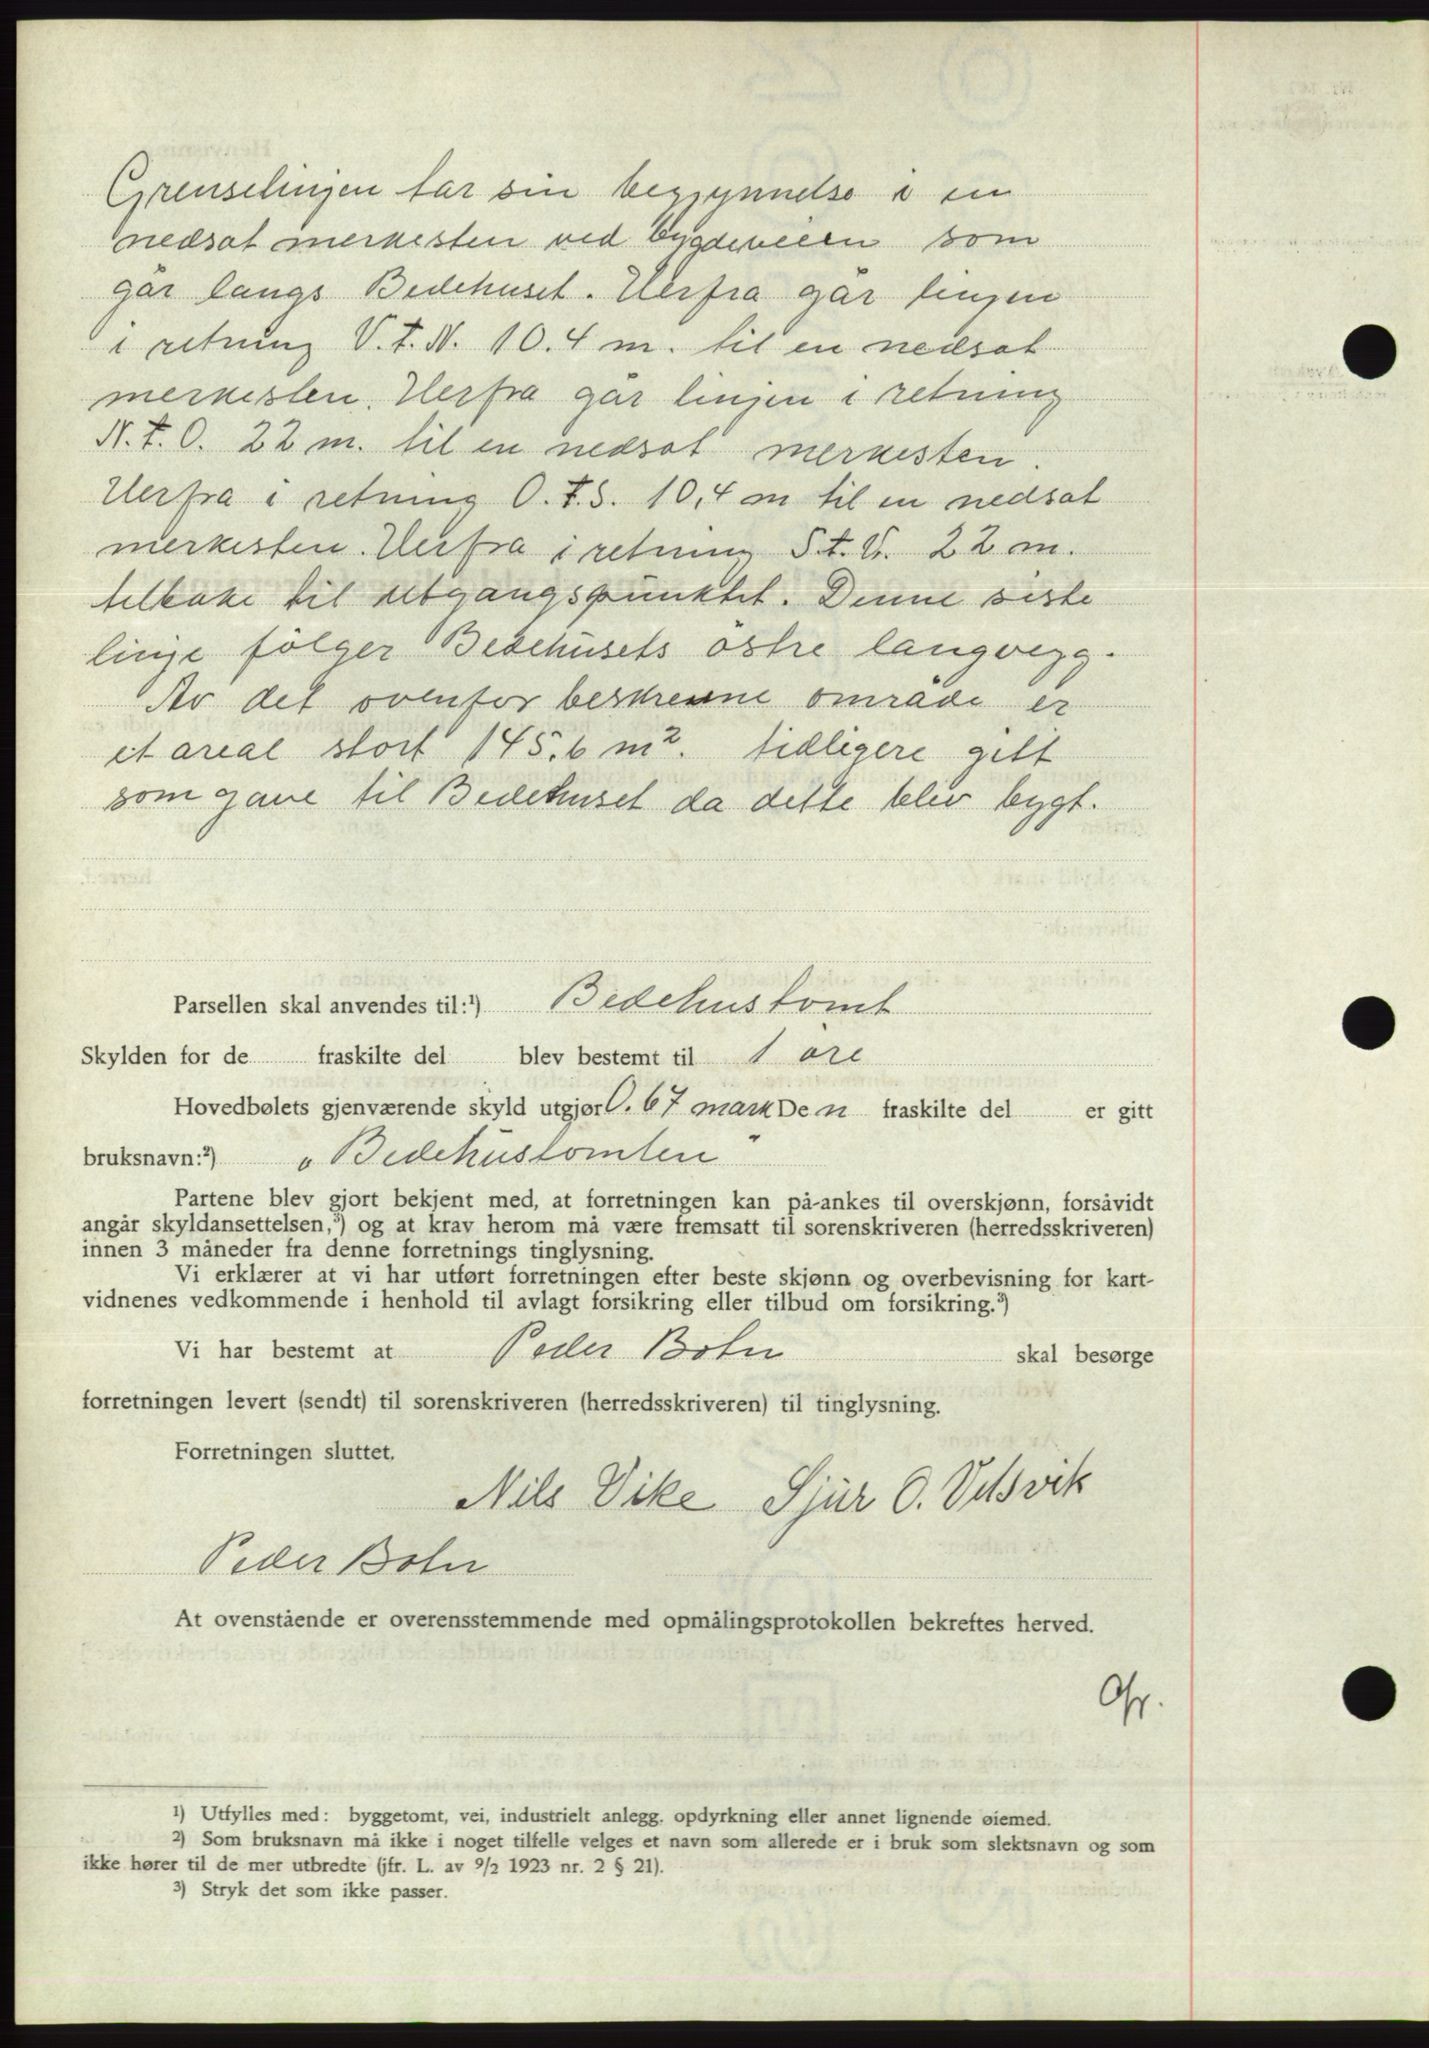 Grenselinjen tar sin begyynnelse i en
nedsat merkesten ved bygdeveien som
går langs Bedehuset. Herfra går linjen
i retning V.t.N. 10.4 m. til en nedsat
merkesten. Herfra går linjen i retning
N.t.O. 22 m. til en nedsat merkesten.
Herfra i retning O.t.S. 10,4 m til en nedsat
merkesten. Herfra i retning S.t.V. 22 m.
tilbake til utgangspunktet. Denne siste
linje følger Bedehusets østre langvegg.
Av det ovenfor beskrevne område er
et areal stort 145.6 m². tidligere gitt
som gave til Bedehuset da dette blev bygt.
Parsellen skal anvendes til:¹) Bedehustomt
Skylden for de fraskilte del blev bestemt til 1 øre
Hovedbølets gjenværende skyld utgjør 0.67 mark De n fraskilte del er gitt
bruksnavn:²) „Bedehustomten"
Partene blev gjort bekjent med, at forretningen kan på-ankes til overskjønn, forsåvidt
angår skyldansettelsen,³) og at krav herom må være fremsatt til sorenskriveren (herredsskriveren)
innen 3 måneder fra denne forretnings tinglysning.
Vi erklærer at vi har utført forretningen efter beste skjønn og overbevisning for kart-
vidnenes vedkommende i henhold til avlagt forsikring eller tilbud om forsikring.³)
Vi har bestemt at Peder Botn skal besørge
forretningen levert (sendt) til sorenskriveren (herredsskriveren) til tinglysning.
Forretningen sluttet.
Nils Vike Sjur O. Velsvik
Peder Botn
At ovenstående er overensstemmende med opmålingsprotokollen bekreftes herved.
¹) Utfylles med: byggetomt, vei, industrielt anlegg. opdyrkning eller annet lignende øiemed.
²) Som bruksnavn må ikke i noget tilfelle velges et navn som allerede er i bruk som slektsnavn og som
ikke hører til de mer utbredte (jfr. L. av 9/2 1923 nr. 2 § 21).
³) Stryk det som ikke passer.